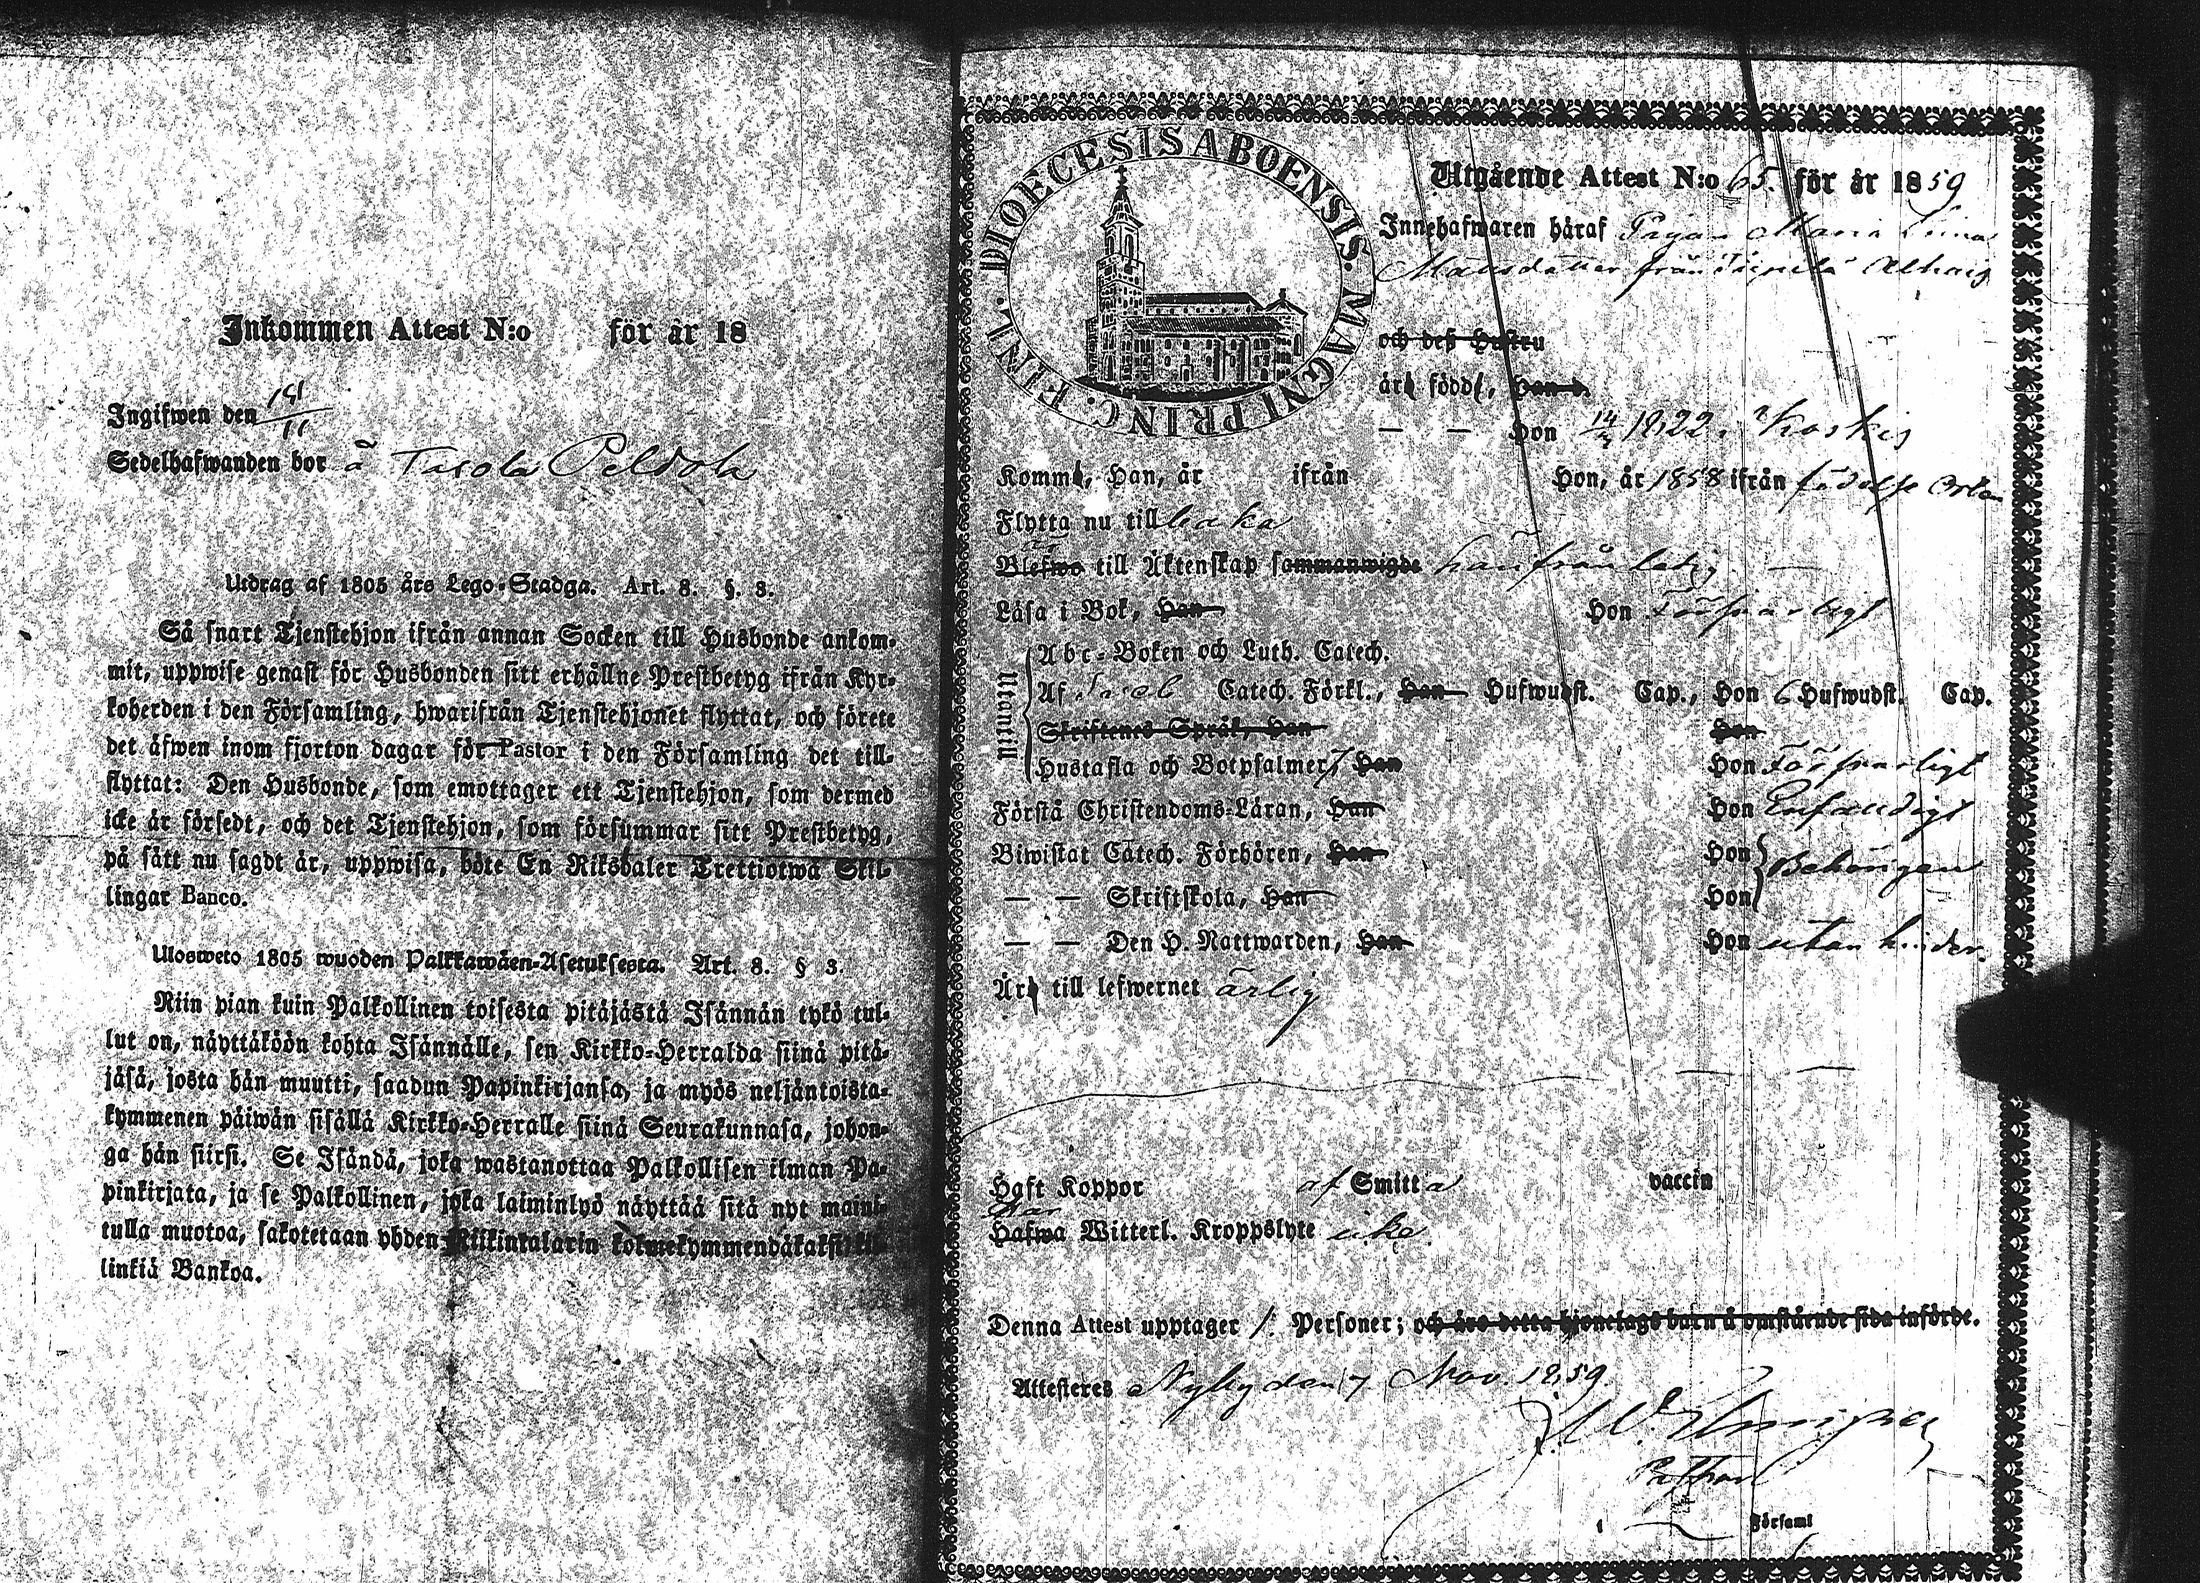 Inkommen Attest N:o för år 18
Ingifwen den 14/11
Sedelhafwanden bor å Tasola Peldola
Utdrag af 1805 års Lego-Stadga. Art. 8. §. 3.
Så snart Tjenstehjon ifrån annan Socken till Husbonde ankom-
mit, uppwise genast för Husbonden sitt erhållne Prestbetyg ifrån Kyr-
koherden i den Församling, hwarifrån Tjenstehjonet flyttat, och förete
det äfwen inom fjorton dagar för Pastor i den Församling det till-
flyttat: Den Husbonde, som emottager ett Tjenstehjon, som dermed
icke är försedt, och det Tjenstehjon, som försummar sitt Prestbetyg,
på sätt nu sagdt är, uppwisa, böte En Riksdaler Trettiotwå Skil-
lingar Banco.
Ulosweto 1805 wuoden Palkkawäen-Asetuksesta. Art. 8. § 3.
Niin pian kuin Palkollinen toisesta pitäjästä Isännän tykö tul-
lut on, näyttäköön kohta Isännälle, sen Kirkko-Herralda siinä pitä-
jäsä, josta hän muutti, saadun Papinkirjansa, ja myös neljäntoista-
kymmenen päiwän sisällä Kirkko-Herralle siinä Seurakunnasa, johon-
ga hän siirsi. Se Isändä, joka wastanottaa Palkollisen ilman Pa-
pinkirjata, ja se Palkollinen, joka laiminlyö näyttää sitä nyt maini-
tulla muotoa, sakotetaan yhden Riikintalarin kolmekymmendäkaksi kil-
linkiä Bankoa.
DIOECESIS ABOENSIS. MAGNI PRINC. FINL.
Utgående Attest N:o 65. för år 1859
Innehafwaren häraf Pigan Maria Lisa
Mattsdotter från
och deß Hustru
är född, Han d.
— — Hon 14 1822. i Koskis
Komm, Han, år ifrån Hon, år 1858 ifrån födelse Orten
Flytta nu tillbaka
Blefwo är till Äktenskap sammanwigde härifrån ledig —
Läsa i Bok, Han Hon Försvarligt
Utantill
Abc-Boken och Luth. Catech.
Af Catech. Förkl., Han Hufwudst. Cap., Hon 6 Hufwudst. Cap.
Skriftenes Språk, Han Hon
Hustafla och Botpsalmer, Han Hon Försvarligt
Förstå Christendoms-Läran, Han Hon Enfaldigt
Biwistat Catech. Förhören, Han Hon Behörigen
— — Skriftskola, Han Hon
— — Den H. Nattwarden, Han Hon utan hinder.
Är till lefwernet ärlig
Haft Koppor af Smitta vaccin
Har
Hafwa Witterl. Kroppslyte icke
Denna Attest upptager 1. Personer; och äro detta hjonelags barn å omstående sida införde.
Attesteres Nyby den 7 Nov. 1859.
Pastor
i Församl